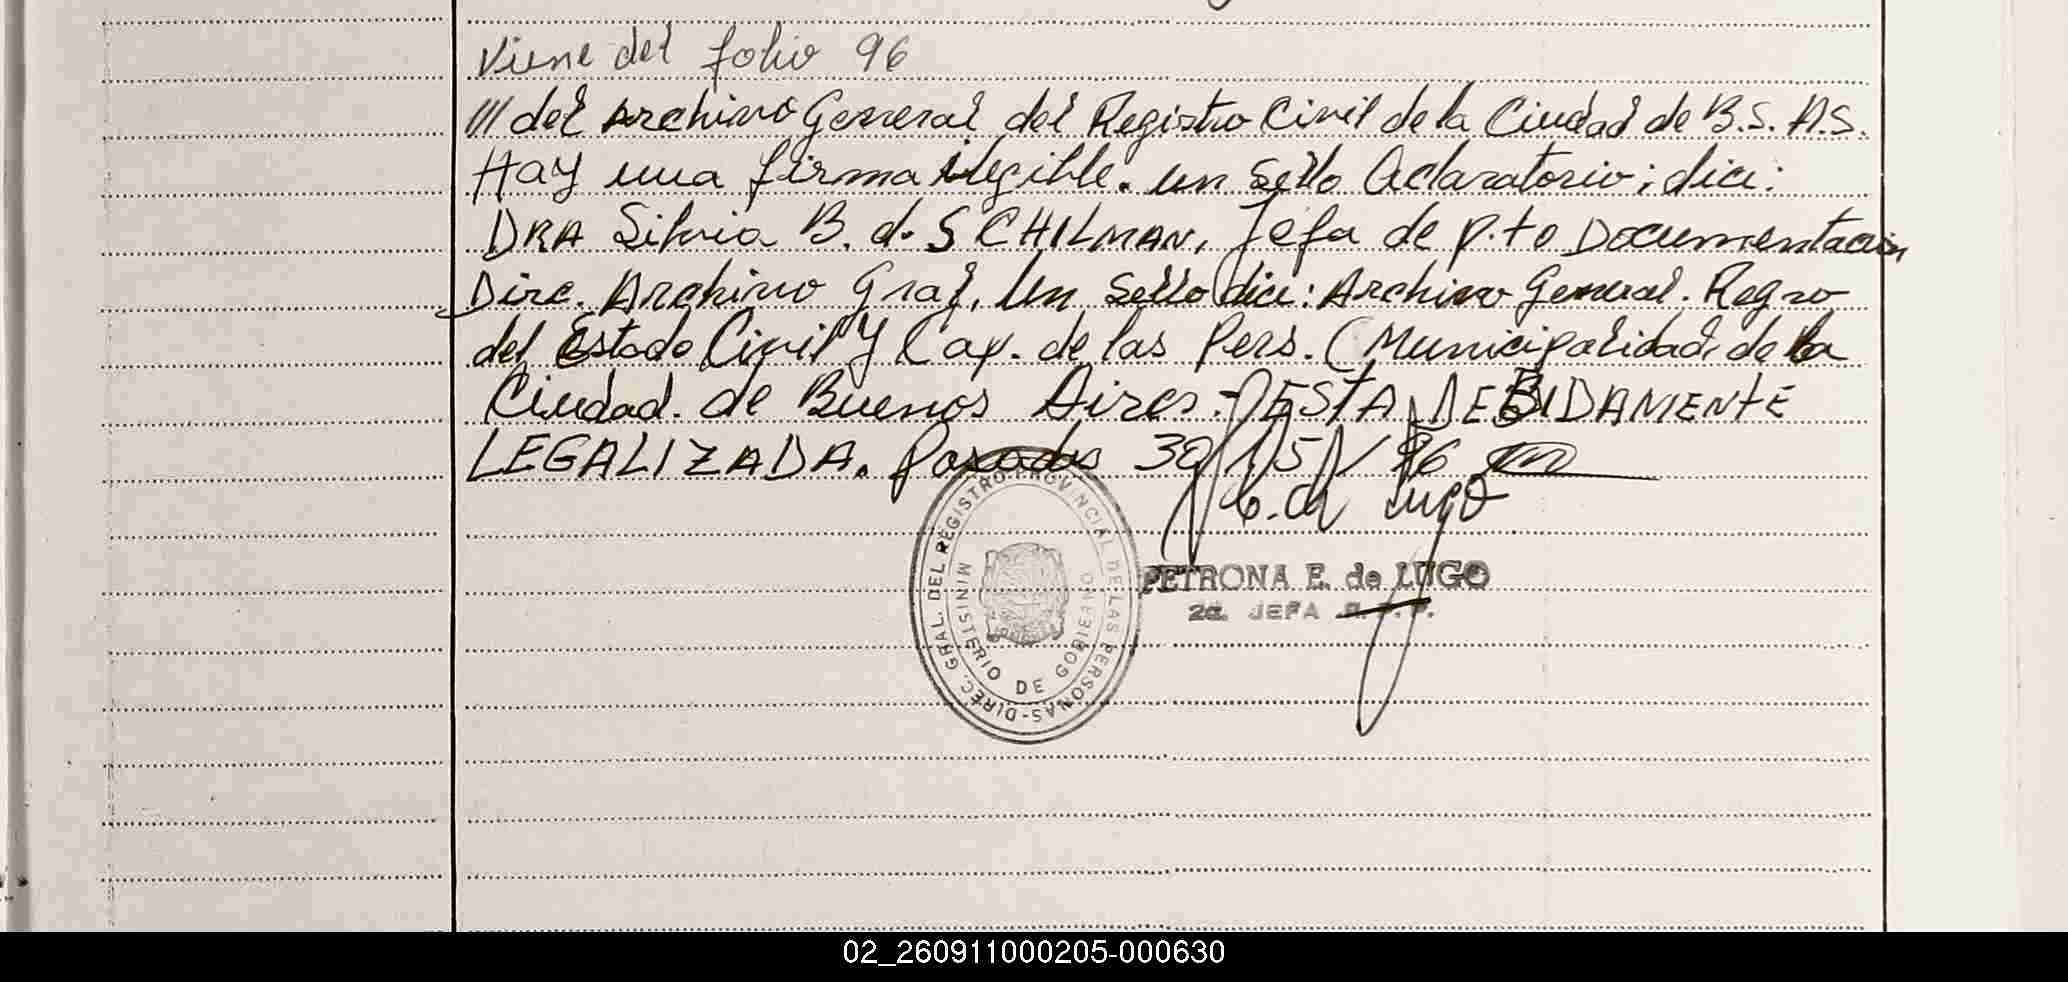 Viene del folio 96
/// del Archivo General del Registro Civil de la Ciudad de B.S. A.S.
Hay una firma ilegible. un sello Aclaratorio; dice:
DRA Silvia B. d. SCHILMAN, Jefa de p.to Documentación
Dirc. Archivo Gral. Un sello dice: Archivo General. Regro
del Estado Civil y Cap. de las Pers. (Municipalidad de la
Ciudad de Buenos Aires.- ESTA DEBIDAMENTE
LEGALIZADA. Posadas 30/ /5/ /96
E. de Lugo
DIREC. GRAL. DEL REGISTRO PROVINCIAL DE LAS PERSONAS-
MINISTERIO DE GOBIERNO
PETRONA E. de LUGO
2a. JEFA
02_260911000205-000630